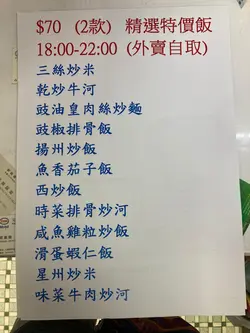 $70 (2款) 精選特價飯
18:00-22:00 (外賣自取)
三絲炒米
乾炒牛河
豉油皇肉絲炒麵
豉椒排骨飯
揚州炒飯
魚香茄子飯
西炒飯
時菜排骨炒河
咸魚雞粒炒飯
滑蛋蝦仁飯
星州炒米
味菜牛肉炒河